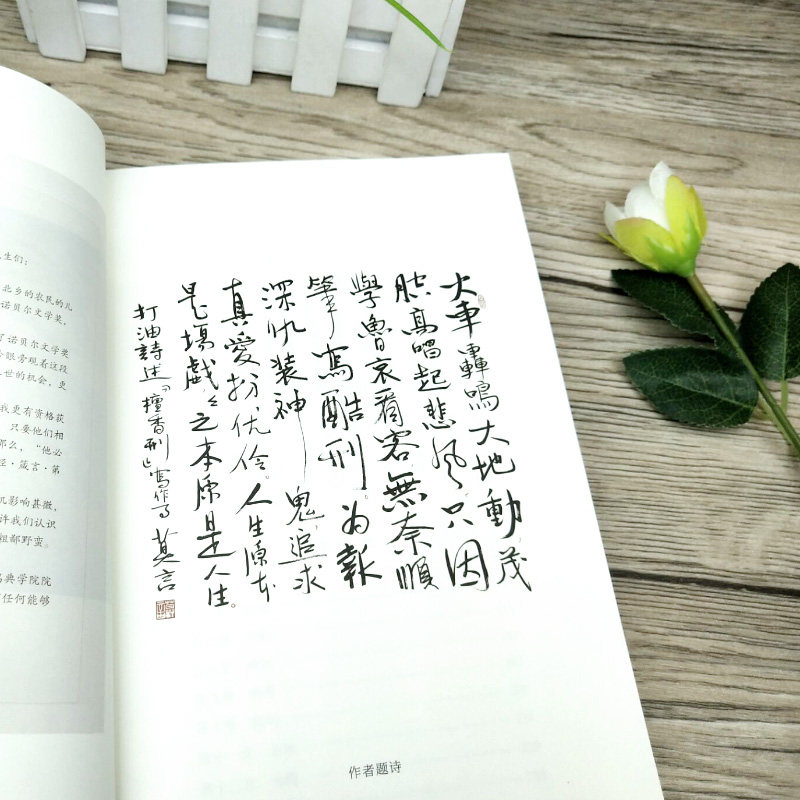 生们：
北乡的农民的儿
诺贝尔文学奖，
了诺贝尔文学奖
眼旁观着这段
世的机会，更
我更有资格获
只要他们相
那么，“他必
经·箴言·第
影响甚微，
许我们认识
粗鄙野蛮。
典学院院
任何能够
火車轟鳴大地動茂
腔高唱起悲风只因
學魯哀看客無奈順
筆寫酷刑。為報
深仇装神鬼追求
真愛扮优伶。人生原本
是場戲，〻之本原是人生。
打油詩述『檀香刑』寫作事 莫言
作者题诗